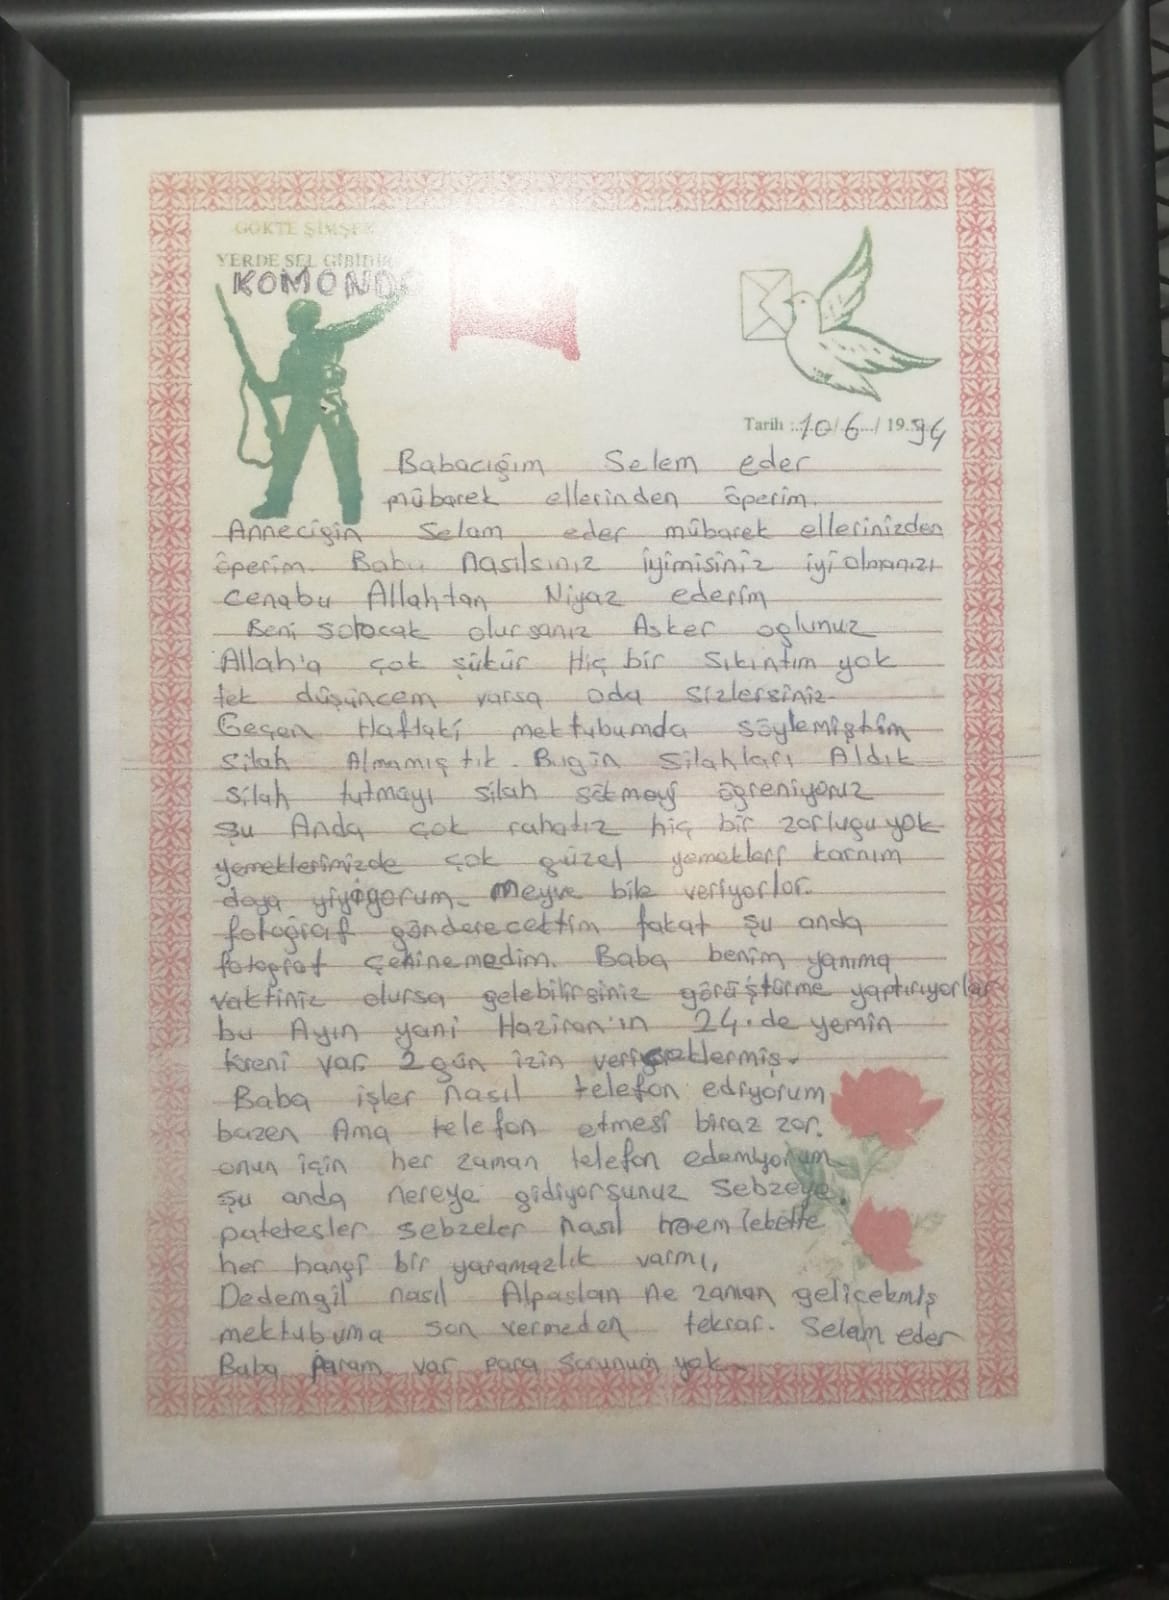 GÖKTE ŞİMŞEK
YERDE SEL GİBİDİR
KOMONDO
Tarih :..10/6.../19.94
Babacığım Selem eder
mübarek ellerinden öperim.
Anneciğin Selam eder mübarek ellerinizden
öperim. Baba nasılsınız iyimisiniz iyi olmanızı
Cenabu Allahtan Niyaz ederim
Beni sorocak olursanız Asker oglunuz
Allah'a çok şükür Hiç bir sıkıntım yok
tek düşüncem varsa oda sizlersiniz-
Geçen Haftaki mektubumda söylemiştim
silah Almamış tık. Bugün silahları Aldık
silah tutmayı silah sökmeyi öğreniyoruz
şu Anda çok rahatız hiç bir zorluğu yok
yemeklerimizde çok güzel yemekleri karnım
doya yiyiyorum. Meyve bile veriyorlar.
fotoğraf gönderecettim fakat şu anda
fotoğraf çekinemedim. Baba benim yanıma
vaktiniz olursa gelebilirsiniz görüştürme yaptırıyorlar
bu Ayın yani Haziran'ın 24.de yemin
töreni var. 2 gün izin vericeklermiş.
Baba işler nasıl telefon ediyorum
bazen Ama telefon etmesi biraz zor.
onun için her zaman telefon edemiyorum
şu anda nereye gidiyorsunuz Sebzeye.
patetesler sebzeler nasıl memlebette
her hangi bir yaramazlık varmı,
Dedemgil nasıl Alpaslan ne zaman geliçekmiş
mektubuma son vermeden tekrar. Selam eder
Baba param var para sorunum yok-